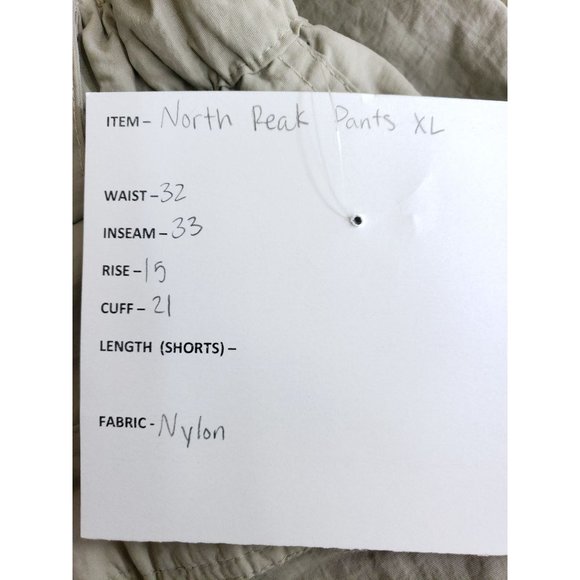 ITEM – North Peak Pants XL
WAIST – 32
INSEAM – 33
RISE – 15
CUFF – 21
LENGTH (SHORTS) –
FABRIC - Nylon